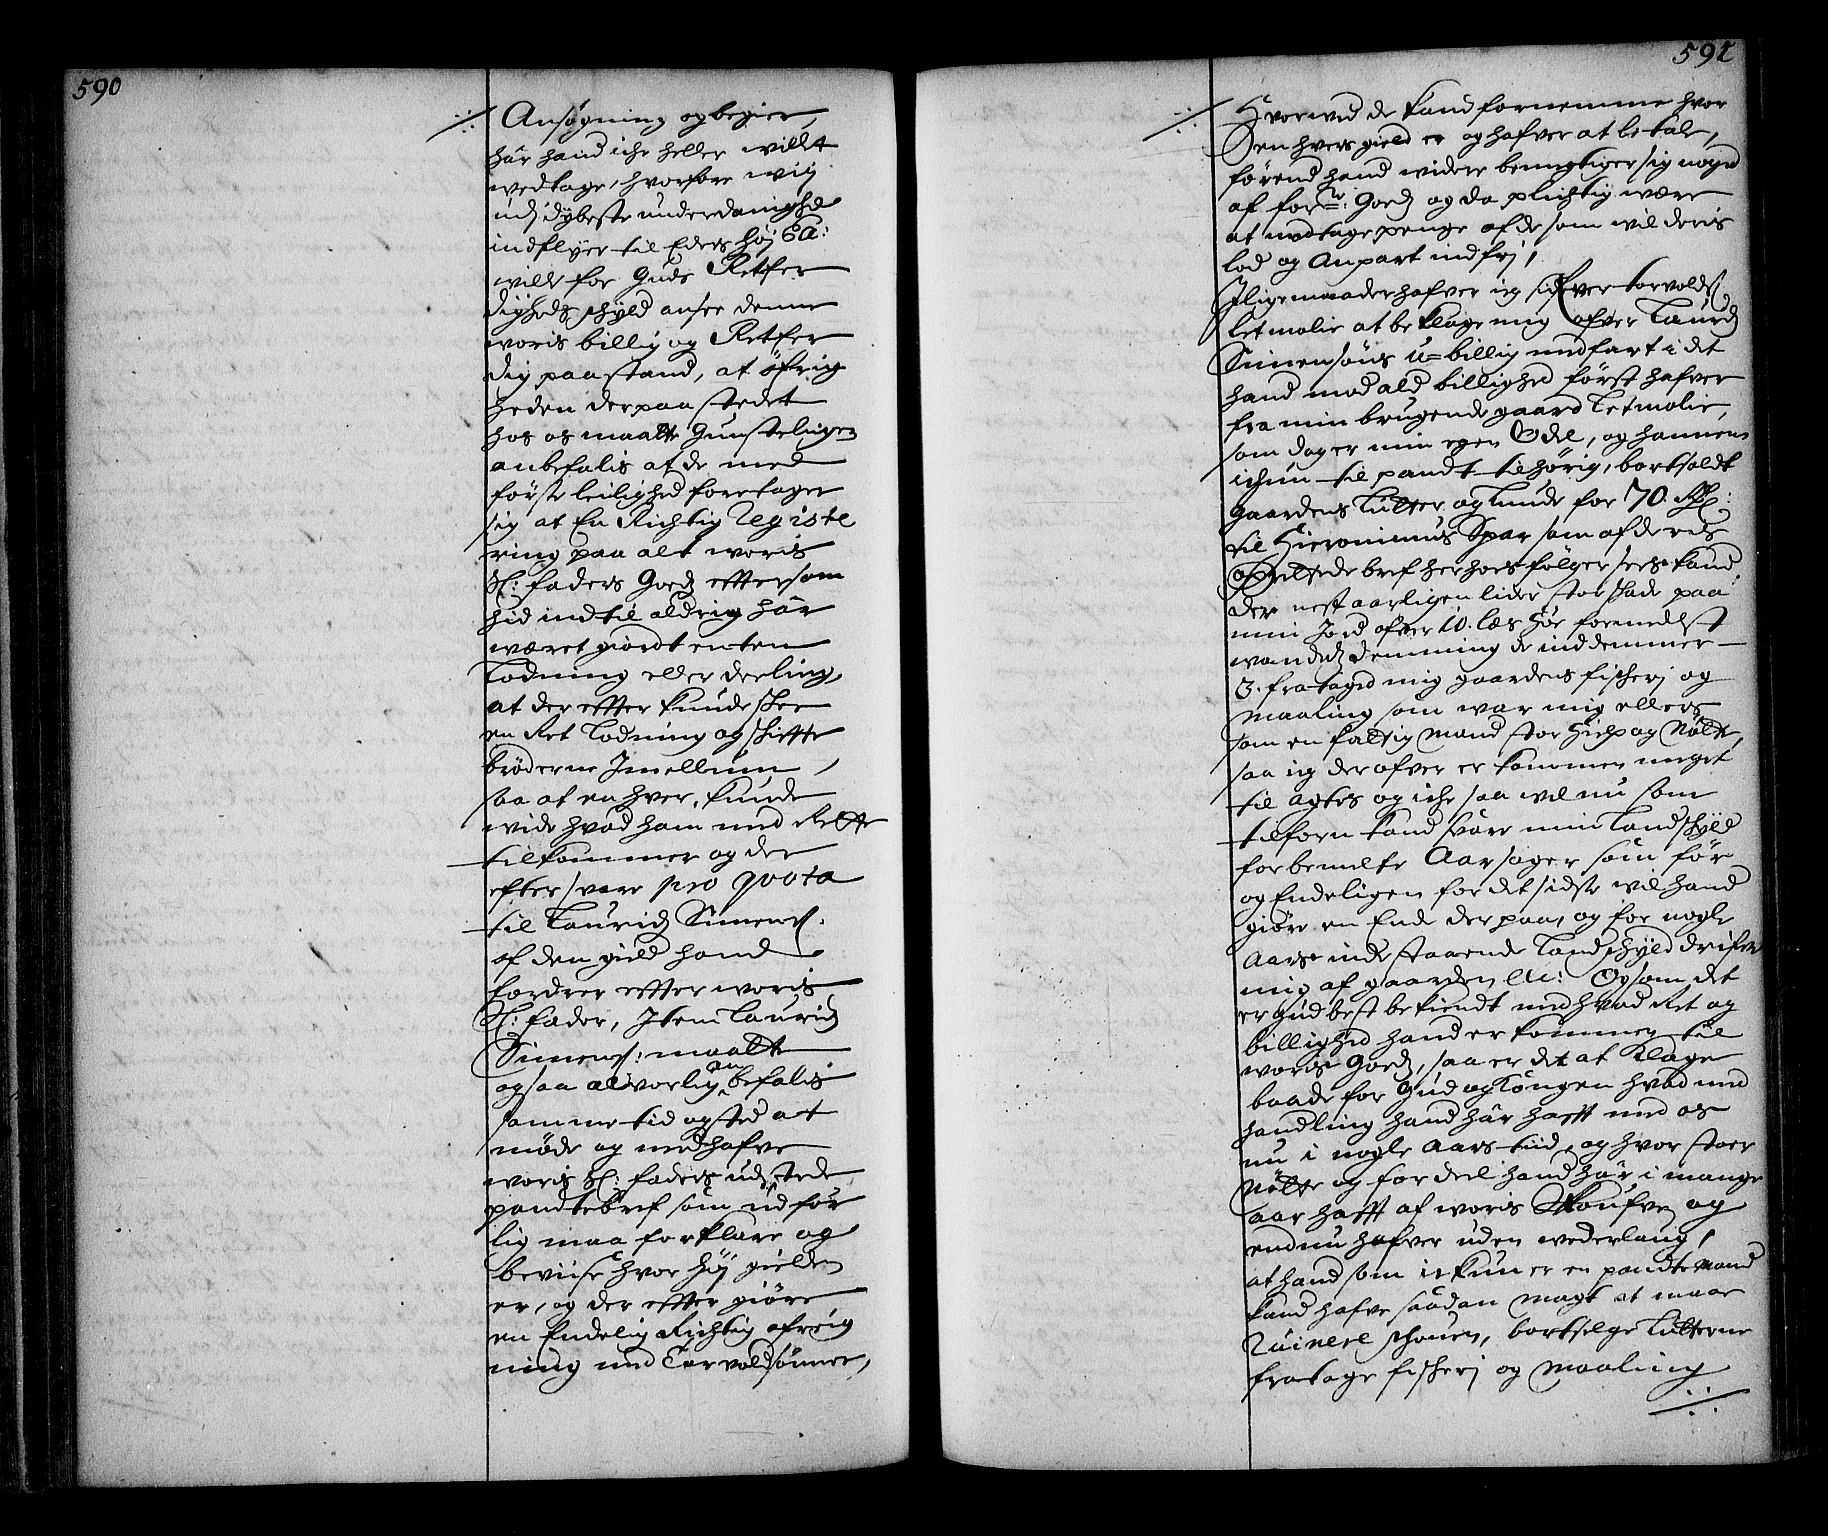 590
Ansøgning og begier,
har hand iche heller villet
vedtage, hvorfore wij
udj dybeste underdanighed
indflyer til Eders Høj Ea:
wilde for Guds Retfer
digheds schyld ansee denne
woris billig og Retfer
dig paastand, at øfrig
heden der paa stedet
hos os maatte Gunsteligen
anbefalis at de med
første leilighed foretager
sig at En Richtig Registe
ring paa alt woris
Sl: faders Godz effter som
hid indtil aldrig har
wæret giordt enten
Lodning eller deeling,
at der effter kunde skee
en Ret Lodning og schiffte
brøderne Imellum,
saa at en hver, kunde
wide hvad ham med Rette
tilkommer og der
efter svare pro qvota
til Lauridz Simens:
af den gield hand
fordrer effter woris
Sl: fader, Item Lauridz
Simens: maatte
ogsaa alvorlig an befalis
samme tid og sted at
møde og medhafve
woris Sl: faders udstede
pandtebref som udfør
lig maa forklare og
beviise hvor høj gielden
er, og der effter giøre
en Endelig Richtig afreig
ning med Torvoldsønner,
591
Hvorved de kand fornemme hvor
Den hvers gield er og hafver at betale,
førend hand widere bemegtiger sig noged
af forne: Godz og da plichtig være
at modtage penge af de som wil deris
lod og Anpart indfrj,
Jligemaader hafver jeg Sifver Torvolds:
Letmolie at beklage mig ofver Lauridz
Simensøns u-billig medfart i det
hand mod ald billighed først hafver
fra min brugende gaard Letmolie,
som dog er min egen Odel, og hannem
ichun til pandt tilhørig, bortsoldt
gaardens Lutter og Lunde for 70 Rdr:
til Hieronimus Spar som af deris
oprettede bref her hos følger sees kand
der nest aarligen lider stor skade paa
min Jord ofver 10. læs Høe formedelst
wandedz demming de inddemmer
3. fratagid mig gaardens fischerj og
maaling som war mig ellers
som en fattig Mand stor hielp og Nøtte,
saa jeg der ofver er kommen meget
til agters og iche saa vel nu som
tilforn kand svare min Landschyld
forbemelte Aarsager som før
og Endeligen for det sidste wil hand
giøre en Ende derpaa, og for nogle
Aars indestaaende Landschyld drifve
mig af gaarden etc: Og som det
er Gud best bekiendt med hvad Ret og
billighed hand er kommen til
woris Godz, saa er det at klage
baade for Gud og Kongen hvad med
handling hand har hafft med os
nu i nogle Aars tiid, og hvor stoer
Nøtte og fordeel hand har i mange
aar hafft af woris Skoufve og
endnu hafver uden wederlaug,
at hand som ickun er en pandte Mand
kand hafve saadan magt at maae
Ruinere schouen, bortselge Lutterne
fratage fischerj og Maaling